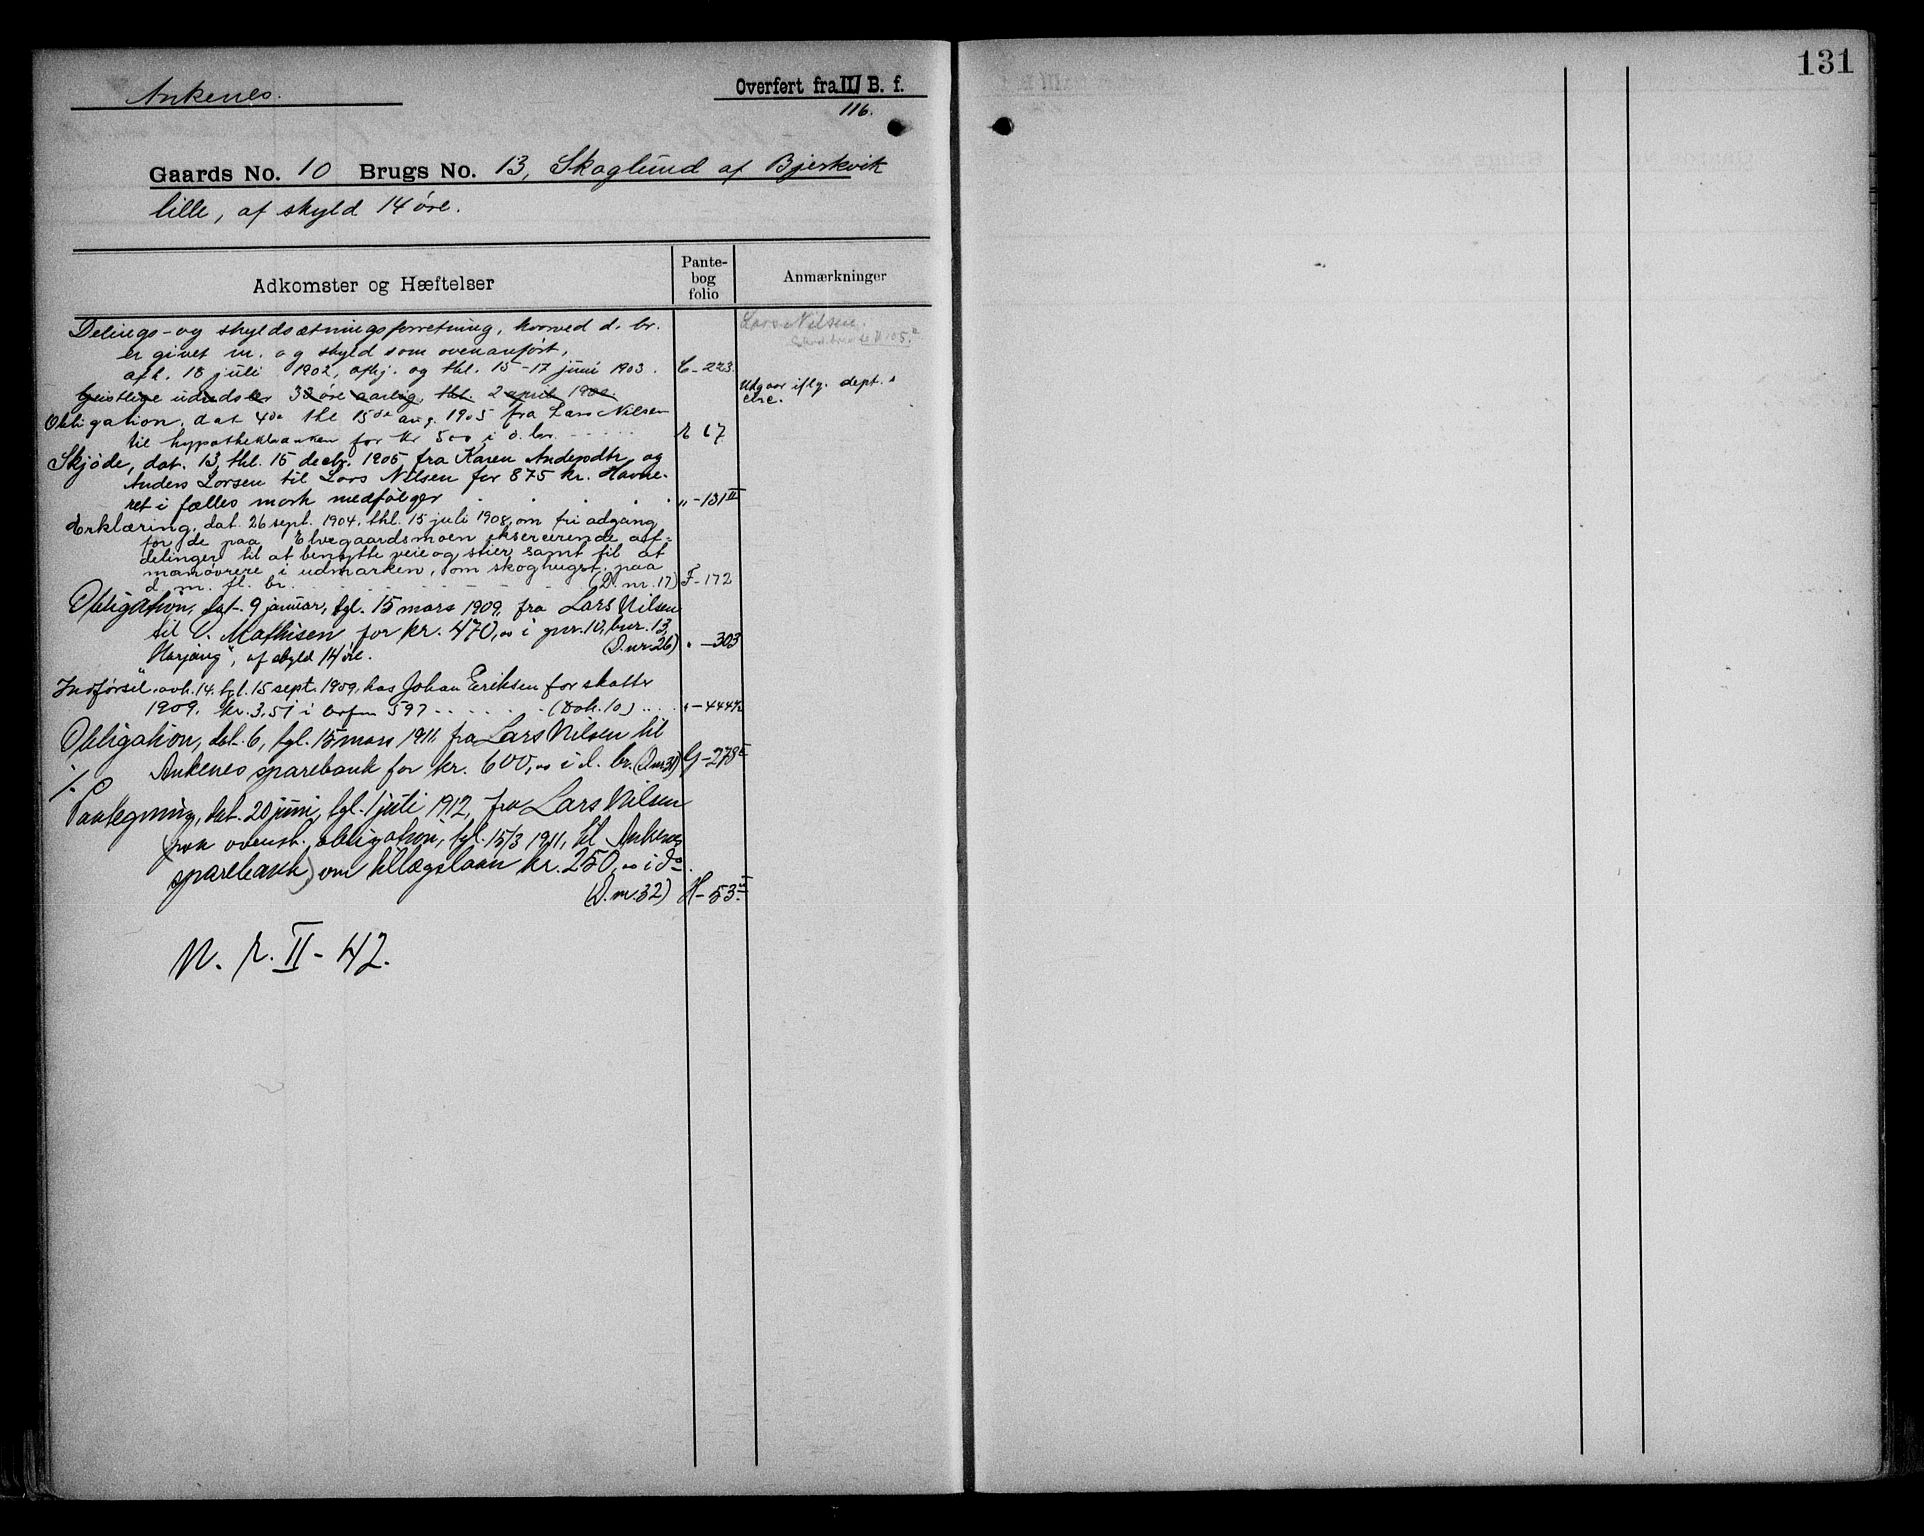 131
Ankenes.
Overført fra III B. f.
116.
Gaards No. 10 Brugs No. 13, Skoglund af Bjerkvik
lille, af skyld 14 øre.
Adkomster og Hæftelser
Pante-
bog
folio
Anmærkninger
Delings- og skyldsætningsforretning, hvorved d. br.
er givet nr. og skyld som ovenanført,
afh. 18 juli 1902, afhj. og thl. 15-17 juni 1903. C-223.
Lars Nilsen.
Geistlige udredsler 33 øre aarlig, thl. 2 april 1900.
Udgaar iflg. dept.s
circ.
Obligation, dat 4de thl 15de aug. 1905 fra Lars Nilsen
til hypothekbanken for kr 500 i d. br. 17
Skjøde, dat. 13, thl. 15 decbr. 1905 fra Karen Andersdtr og
Anders Larsen til Lars Nilsen for 875 kr. Havne-
ret i fælles mark medfølger „-131 II
Erklæring, dat. 26 sept. 1904, thl. 15 juli 1908, om fri adgang
for de paa Elvegaardsmoen eksercerende af-
delinger til at benytte veie og stier samt til at
manøvrere i udmarken, om skoghugst paa
d. m. fl. br. (D. nr. 17) F-172
Obligation, dat. 9 januar, tgl. 15 mars 1909, fra Lars Nilsen
til O. Mathisen for kr. 470,00 i gnr. 10, bnr. 13,
"Harjang", af skyld 14 øre. (D. nr. 26) " -303
Indførsel, avh. 14, tgl. 15 sept. 1909, hos Johan Eriksen for skatter
1909, kr. 3,51 i 597 (Dok. 10) "-444
Obligation, dat. 6, tgl. 15 mars 1911, fra Lars Nilsen til
Ankenes sparebank for kr. 600,00 i d. br. (D nr 31) G-278
./.
Paategning, dat. 20 juni, tgl. 1 juli 1912, fra Lars Nilsen
(paa ovenst. obligation, tgl. 15/3 1911, til Ankenes
sparebank) om tillægslaan kr. 250,00 i do.
(D. nr. 32) H-53
N. r. II - 42.